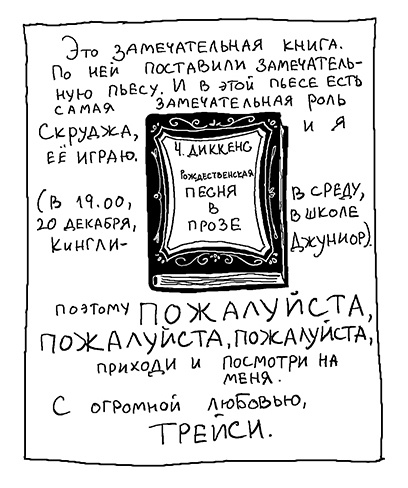 Это замечательная книга.
По ней поставили замечатель-
ную пьесу. И в этой пьесе есть
самая замечательная роль
Скруджа, и я
её играю.
Ч. Диккенс
Рождественская
песня
в
прозе
(в 19.00, в среду,
20 декабря, в школе
Кингли- Джуниор).
поэтому ПОЖАЛУЙСТА,
ПОЖАЛУЙСТА, ПОЖАЛУЙСТА,
приходи и посмотри на
меня.
С огромной любовью,
ТРЕЙСИ.